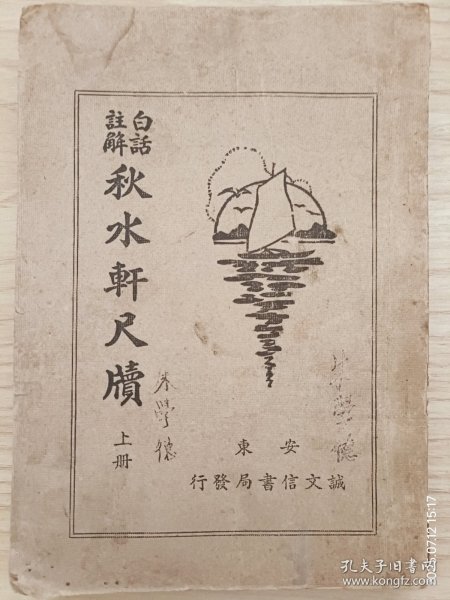 白話
註解
秋水軒尺牘
上册
學德
東 安
行發局書信文誠
2025.07.12 15:17
孔夫子旧书网
www.kongfz.com